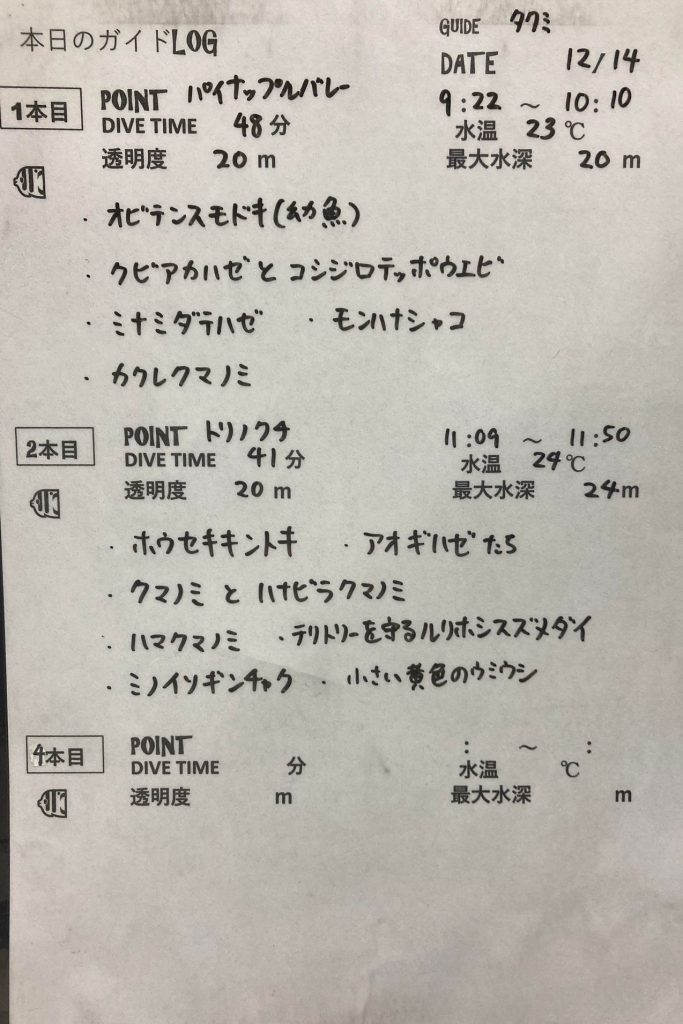 本日のガイドLOG
GUIDE タクミ
DATE 12/14
1本目 POINT パイナップルバレー 9:22 ～ 10:10
DIVE TIME 48分 水温 23℃
透明度 20 m 最大水深 20 m
・オビテンスモドキ(幼魚)
・クビアカハゼと コシジロテッポウエビ
・ミナミダテハゼ ・モンハナシャコ
・カクレクマノミ
2本目 POINT トリノクチ 11:09 ～ 11:50
DIVE TIME 41分 水温 24℃
透明度 20 m 最大水深 24m
・ホウセキキントキ ・アオギハゼたち
・クマノミ と ハナビラクマノミ
・ハマクマノミ ・テリトリーを守るルリホシスズメダイ
・ミノイソギンチャク ・小さい黄色のウミウシ
4本目 POINT : ～ :
DIVE TIME 分 水温 ℃
透明度 m 最大水深 m